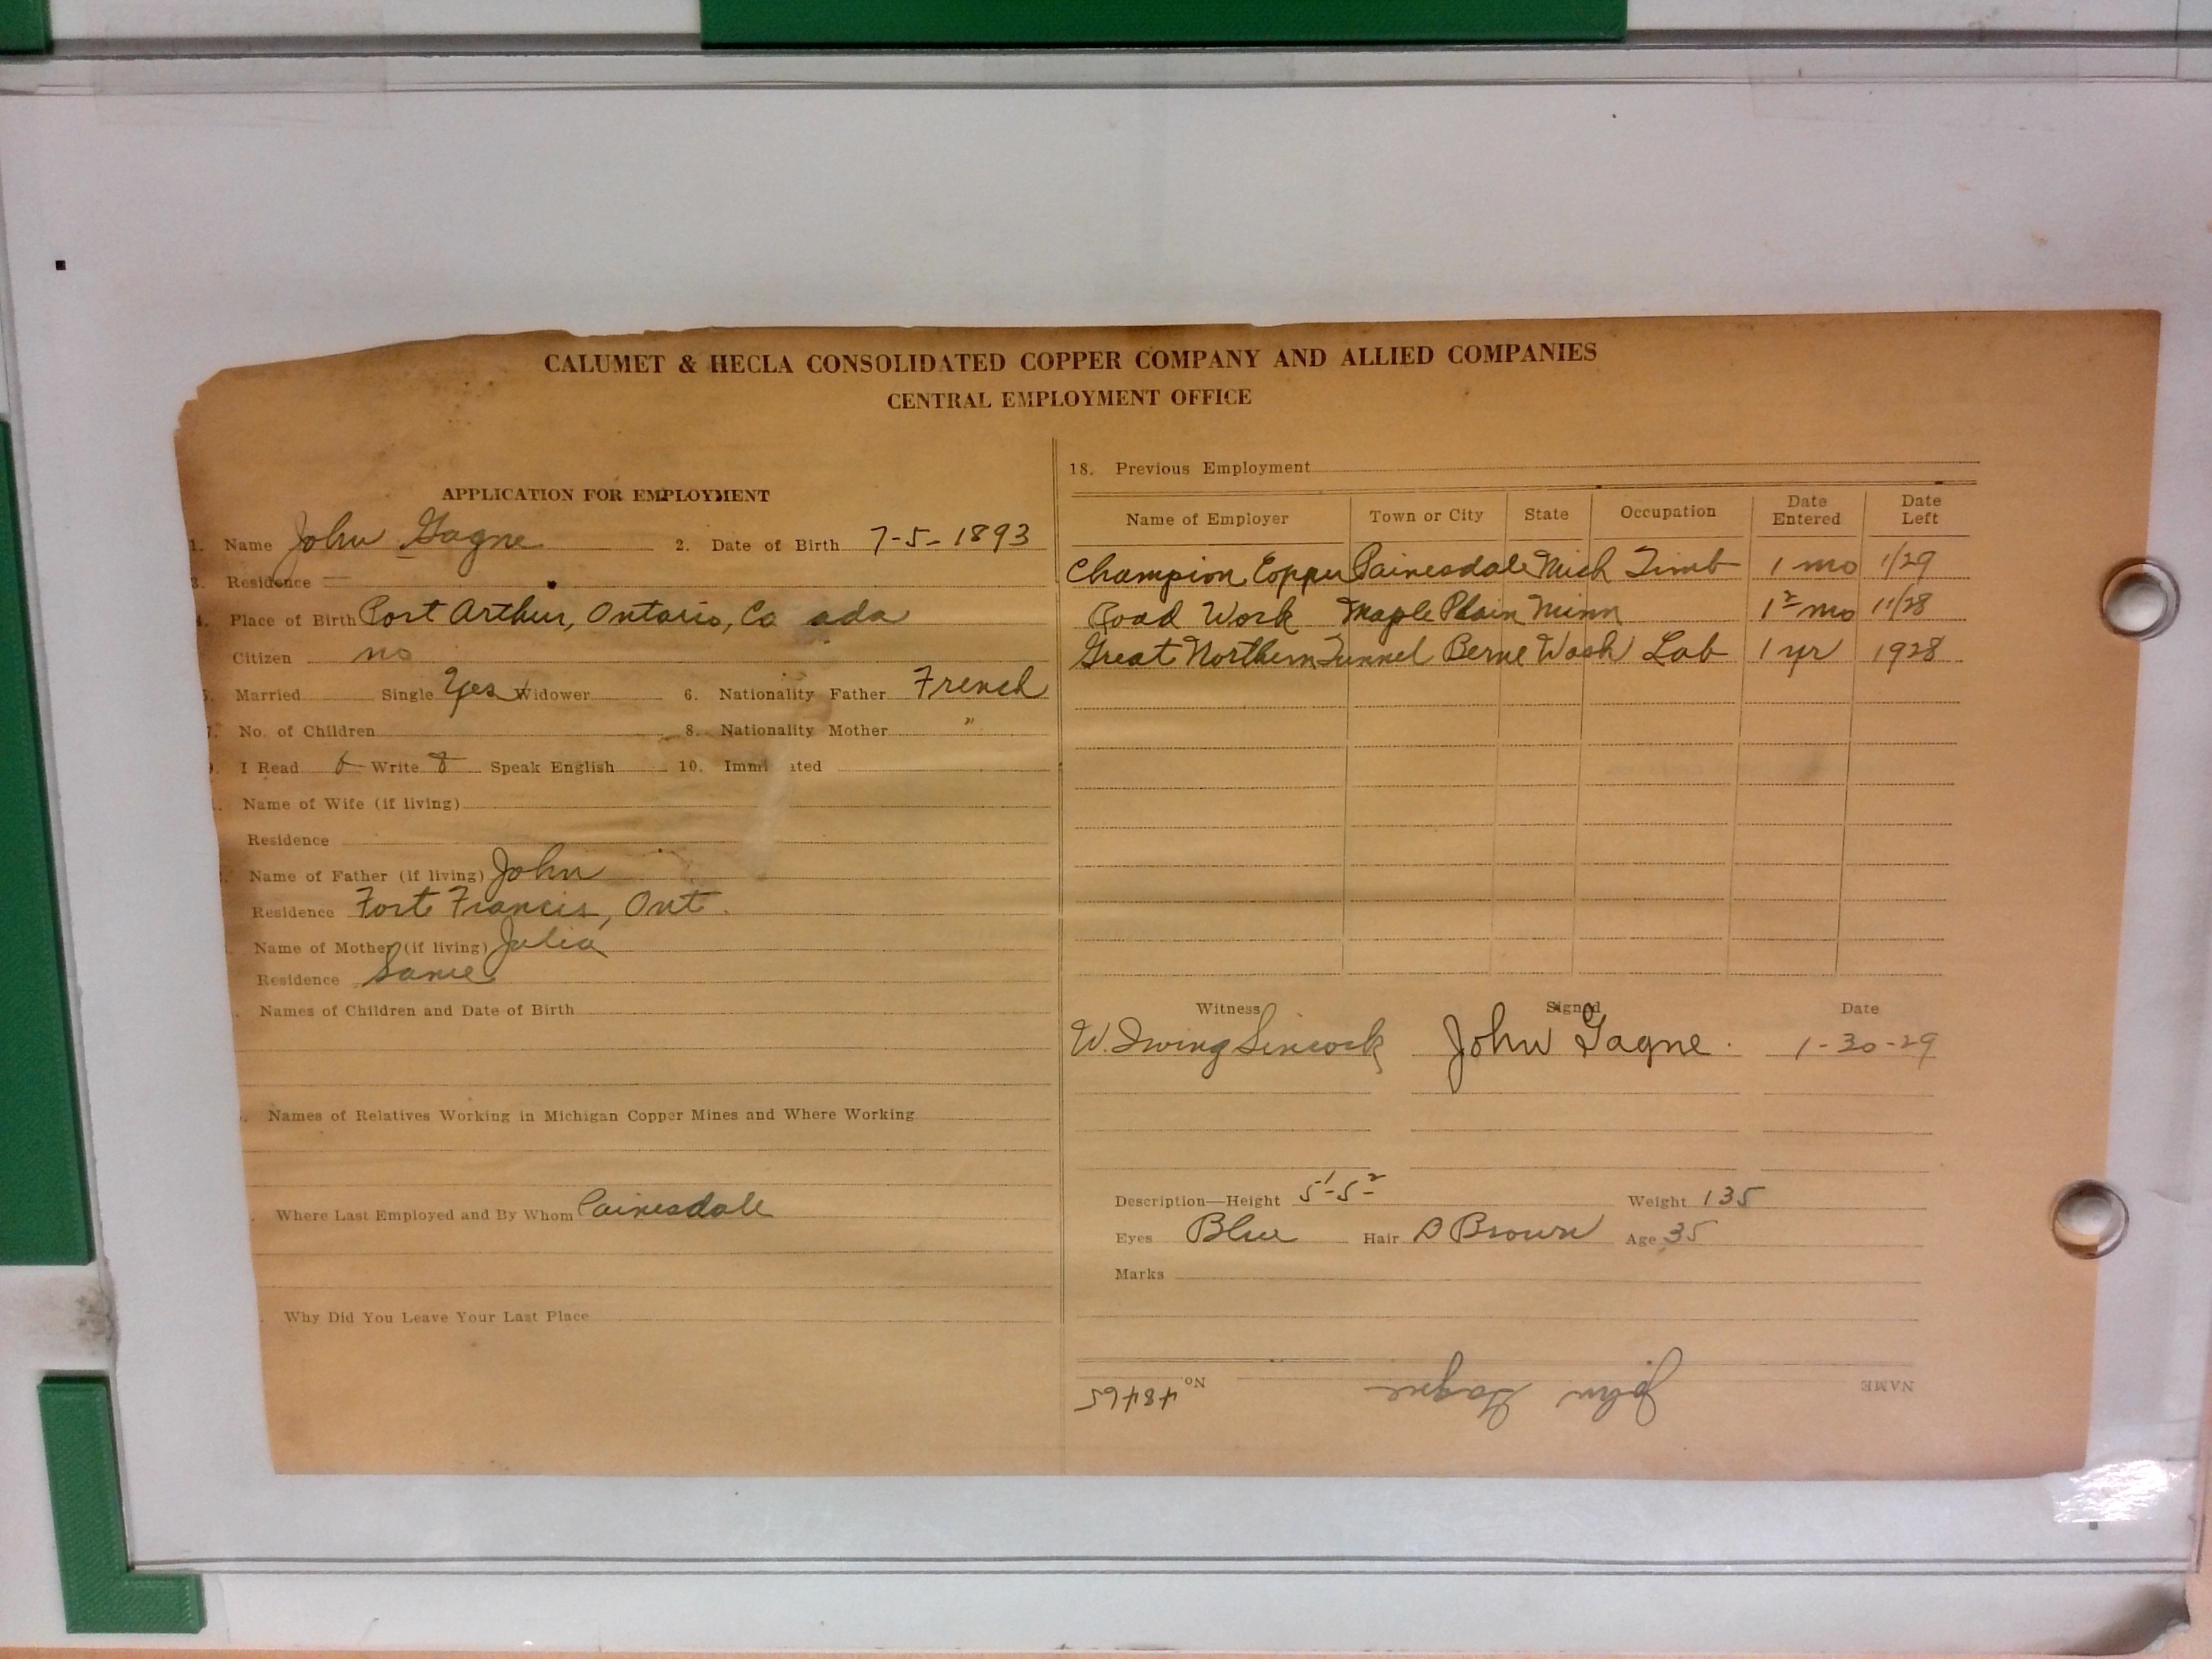 CALUMET & HECLA CONSOLIDATED COPPER COMPANY AND ALLIED COMPANIES
CENTRAL EMPLOYMENT OFFICE
APPLICATION FOR EMPLOYMENT
1. Name John Gagne 2. Date of Birth 7-5-1893
3. Residence —
4. Place of Birth Port Arthur, Ontario, Ca ada
Citizen no
5. Married Single Yes Widower 6. Nationality Father French
7. No. of Children 8. Nationality Mother "
9. I Read Write Speak English 10. Immi ated
Name of Wife (if living)
Residence
Name of Father (if living) John
Residence Fort Francis, Ont.
Name of Mother (if living) Julia
Residence Same
Names of Children and Date of Birth
Names of Relatives Working in Michigan Copper Mines and Where Working
Where Last Employed and By Whom Painesdale
Why Did You Leave Your Last Place
18. Previous Employment
Name of Employer Town or City State Occupation Date Entered Date Left
Champion Copper Painesdale Mich Timb 1 mo 1/29
Road Work Maple Plain Minn 1 2 mo 11/28
Great Northern Tunnel Berne Wash Lab 1 yr 1928
Witness Signed Date
W. Irving Sincock John Gagne. 1-30-29
Description—Height 5'-5 2 Weight 135
Eyes Blue Hair D Brown Age 35
Marks
NAME John Gagne No 48465